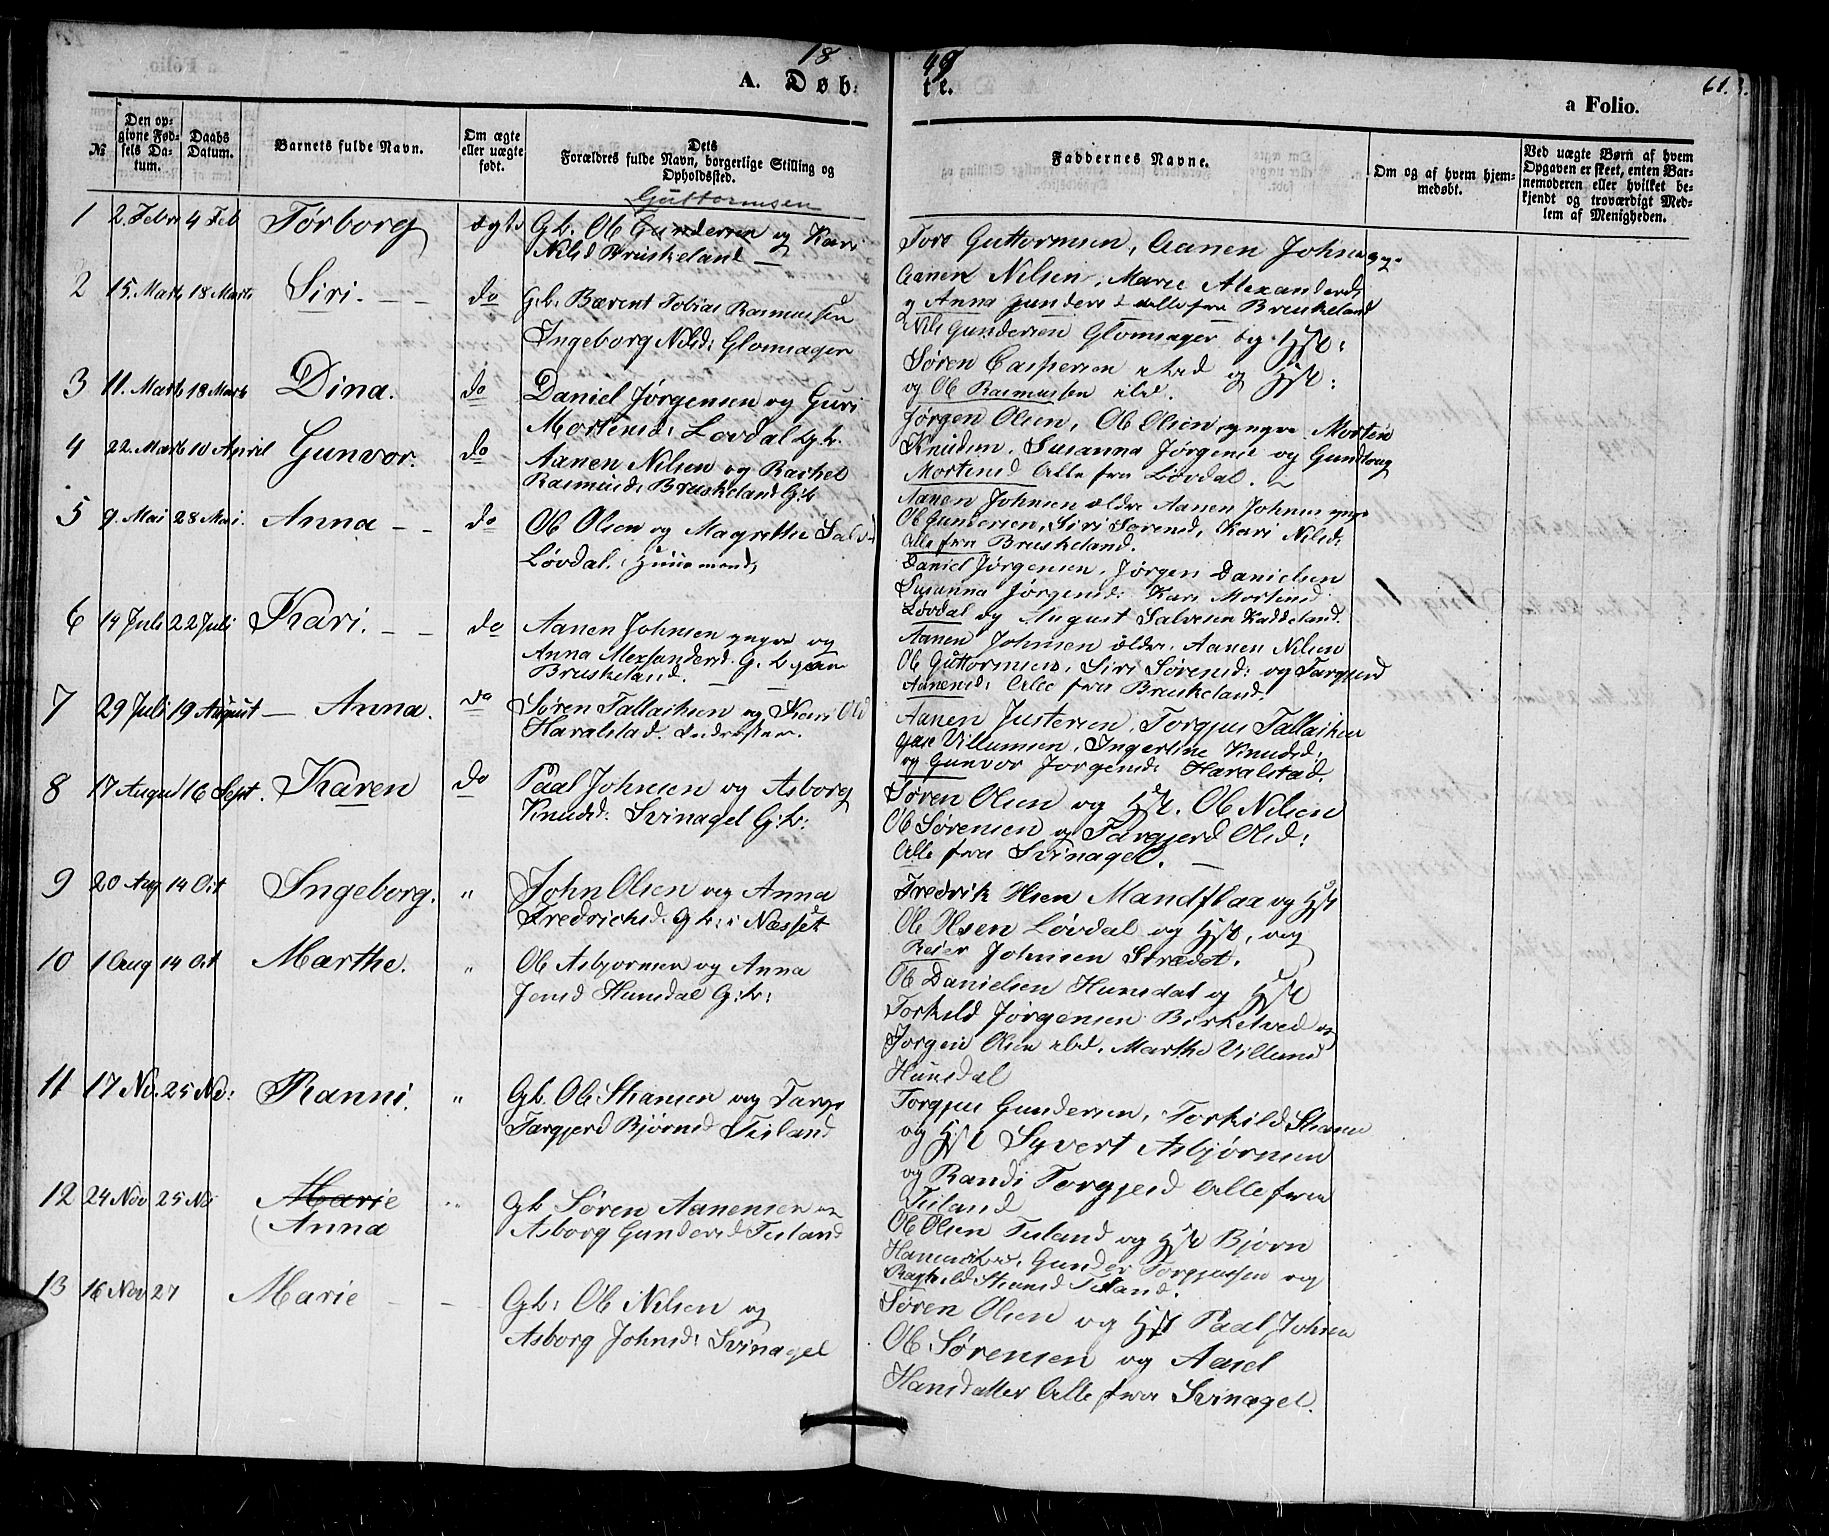 18
49
61.
A. Døb-
te.
a Folio.
№
Den op-
givne Fød-
sels Da-
tum.
Daabs
Datum.
Barnets fulde Navn.
Om ægte
eller uægte
født.
Dets
Forældres fulde Navn, borgerlige Stilling og
Opholdssted.
Faddernes Navne.
Om og af hvem hjem-
medøbt.
Ved uægte Børn af hvem
Opgaven er skeet, enten Bar-
nemoderen eller hvilket be-
kjendt og troværdigt Med-
lem af Menigheden.
Guttormsen
1 2. Febr 4 Feb Torborg ægte Gb. Ole Gundersen og Kari
Nilsd Bruskeland
Tore Guttormsen, Aanen Johnsen yng.
Aanen Nilsen, Marie Alexandersd.
og Anna Gundersd alle fra Bruskeland
2 15. Marts 18 Marts Siri. do Gb. Bærent Tobias Rasmussen
Ingeborg Nilsd: Glomsager
Nils Gundersen Glomsager og Hst:
Søren Caspersen ibd og Hst:
og Ole Rasmussen ibd.
3 11. Marts 18 Marts Dina. do Daniel Jørgensen og Guri
Mortensd: Lovdal Gb.
Jørgen Olsen, Ole Olsen yngre Morten
Knudsen, Susanna Jørgensd og Gundlaug
Mortensd Alle fra Løvdal.
4 22. Marts 10 April Gunvor. do Aanen Nilsen og Rachel
Rasmusd: Bruskeland Gb
Aanen Johnsen ældre Aanen Johnsen yngr
Ole Gundersen, Siri Sorensd, Kari Nilsd:
Alle fra Bruskeland.
5 9. Mai 28 Mai. Anna do Ole Olsen og Magrethe Salvd
Løvdal. Huusmand,
Daniel Jørgensen, Jørgen Danielsen
Susanna Jørgensd: Kari Mortensd
Løvdal og August Salvesen Kaddeland.
6 14 Juli 22 Juli Kari. do Aanen Johnsen yngre og
Anna Alexandersd. G.b.
Bruskeland.
Aanen Johnsen ældre, Aanen Nilsen
Ole Guttormsen, Siri Sørensd: og Targjerd
Aanensd: Alle fra Bruskeland
7 29 Juli 19 August Anna. do Søren Tallaksen og Kari Olsd
Haralstad. Inderster.
Aanen Justesen, Torgjus Tallaksen
Villumsen, Ingerline Knudsd,
og Gunvor Jorgensd: Haralstad.
8 17 August 16 Sept. Karen do Paal Johnsen og Asborg
Knudsd: Svinagel G:b:
Søren Olsen og Hst. Ole Nilsen
Ole Sørensen og Targjerd Olsd:
Alle fra Svinagel.
9 20 Aug 14 Oct Ingeborg. " John Olsen og Anna
Fredrichsd. Gb: i Næsset
Fredrik Olsen Mandflaa og Hst
Ole Olsen Løvdal og Hst, og
Reier Johnsen Strædet.
10 1 Aug 14 Oct Marthe. " Ole Asbjornsen og Anna
Jensd Hunsdal G:b:
Ole Danielsen Hunsdal og Hst
Torkild Jørgensen Birkelved og
Jorgen Olsen ibd. Marthe Villumsd
Hunsdal
11 17 No. 25 No: Ranni. " Gb. Ole Stiansen og Targe
Targjerd Bjørnsd Tisland
Torgjus Gundersen, Torkild Stianse
og Hst Syvert Asbjørnsen
og Randi Torgjesd Alle fra
Tisland
12 24 Nov 25 No Marie
Anna " Gb Søren Aanensen og
Asborg Gundersd Tisland
Ole Olsen Tisland og Hst Bjørn
Gunder Torgjussen og
Raghild Stiansd Tisland.
13 16 Nov 27 Marie Gb: Ole Nilsen og
Asborg Johnsd: Svinagel
Søren Olsen og Hst Paal Johnsen
Ole Sørensen og Aasel
Hansdatter Alle fra Svinagel.